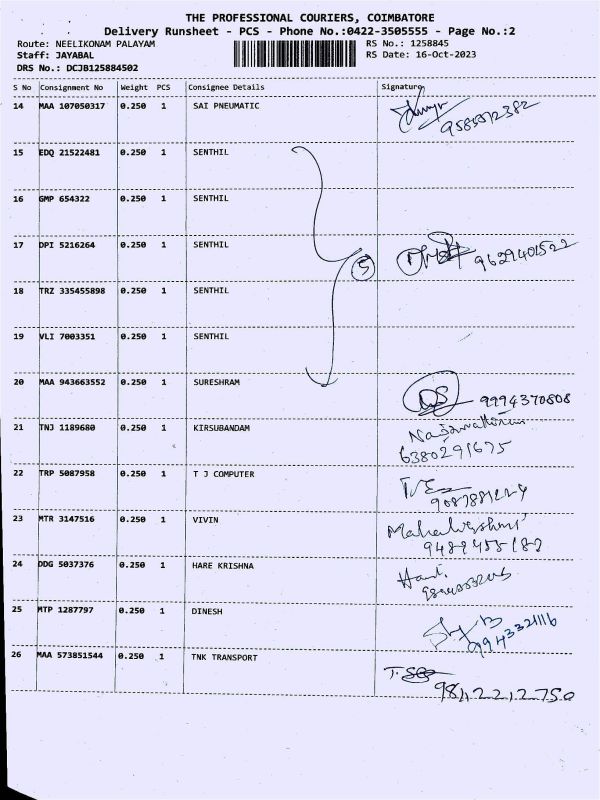 THE PROFESSIONAL COURIERS, COIMBATORE
Delivery Runsheet - PCS - Phone No.:0422-3505555 - Page No.:2
Route: NEELIKONAM PALAYAM RS No.: 1258845
Staff: JAYABAL RS Date: 16-Oct-2023
DRS No.: DCJB125884502
S No Consignment No Weight PCS Consignee Details Signature
14 MAA 107050317 0.250 1 SAI PNEUMATIC
15 EDQ 21522481 0.250 1 SENTHIL
16 GMP 654322 0.250 1 SENTHIL
17 DPI 5216264 0.250 1 SENTHIL 5 9629401522
18 TRZ 335455898 0.250 1 SENTHIL
19 VLI 7003351 0.250 1 SENTHIL
20 MAA 943663552 0.250 1 SURESHRAM
9994370808
21 TNJ 1189680 0.250 1 KIRSUBANDAM
6380291675
22 TRP 5087958 0.250 1 T J COMPUTER
23 MTR 3147516 0.250 1 VIVIN
9489455182
24 DDG 5037376 0.250 1 HARE KRISHNA
25 MTP 1287797 0.250 1 DINESH
9943321116
26 MAA 573851544 0.250 1 TNK TRANSPORT
9812212750